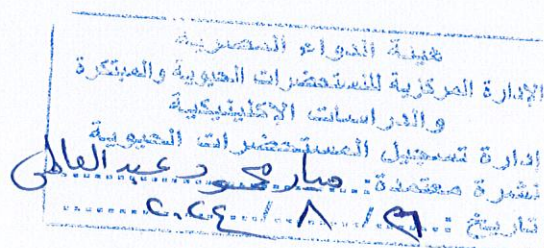 هيئة الدواء المصرية
الإدارة المركزية للمستحضرات الحيوية والمبتكرة
والدراسات الإكلينيكية
ادارة تسجيل المستحضرات الحيوية
نشرة معتمدة: محمود عبدالعاطي
تاريخ : ٢٩ / ٨ / ٢٠٢٤